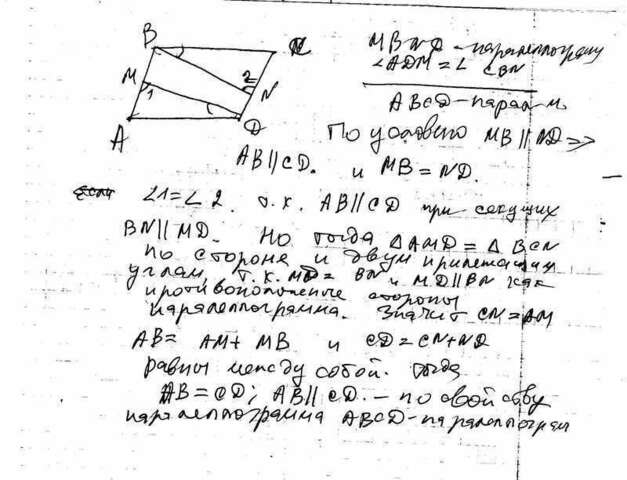 B
M
2
N
1
A
D
MBND - параллелограмм
∠ADM = ∠CBN
ABCD - парал-м
По условию MB || ND =>
AB || CD. и MB = ND.
∠1 = ∠2. т.к. AB || CD при секущих
BN || MD. Но тогда △AMD = △BCN
по стороне и двум прилежащим
углам, т.к. MD = BN и MD || BN как
противоположные стороны
параллелограмма. Значит CN = AM
AB = AM + MB и CD = CN + ND
равны между собой. тогда
AB = CD; AB || CD. - по свойству
параллелограмма ABCD - параллелограм